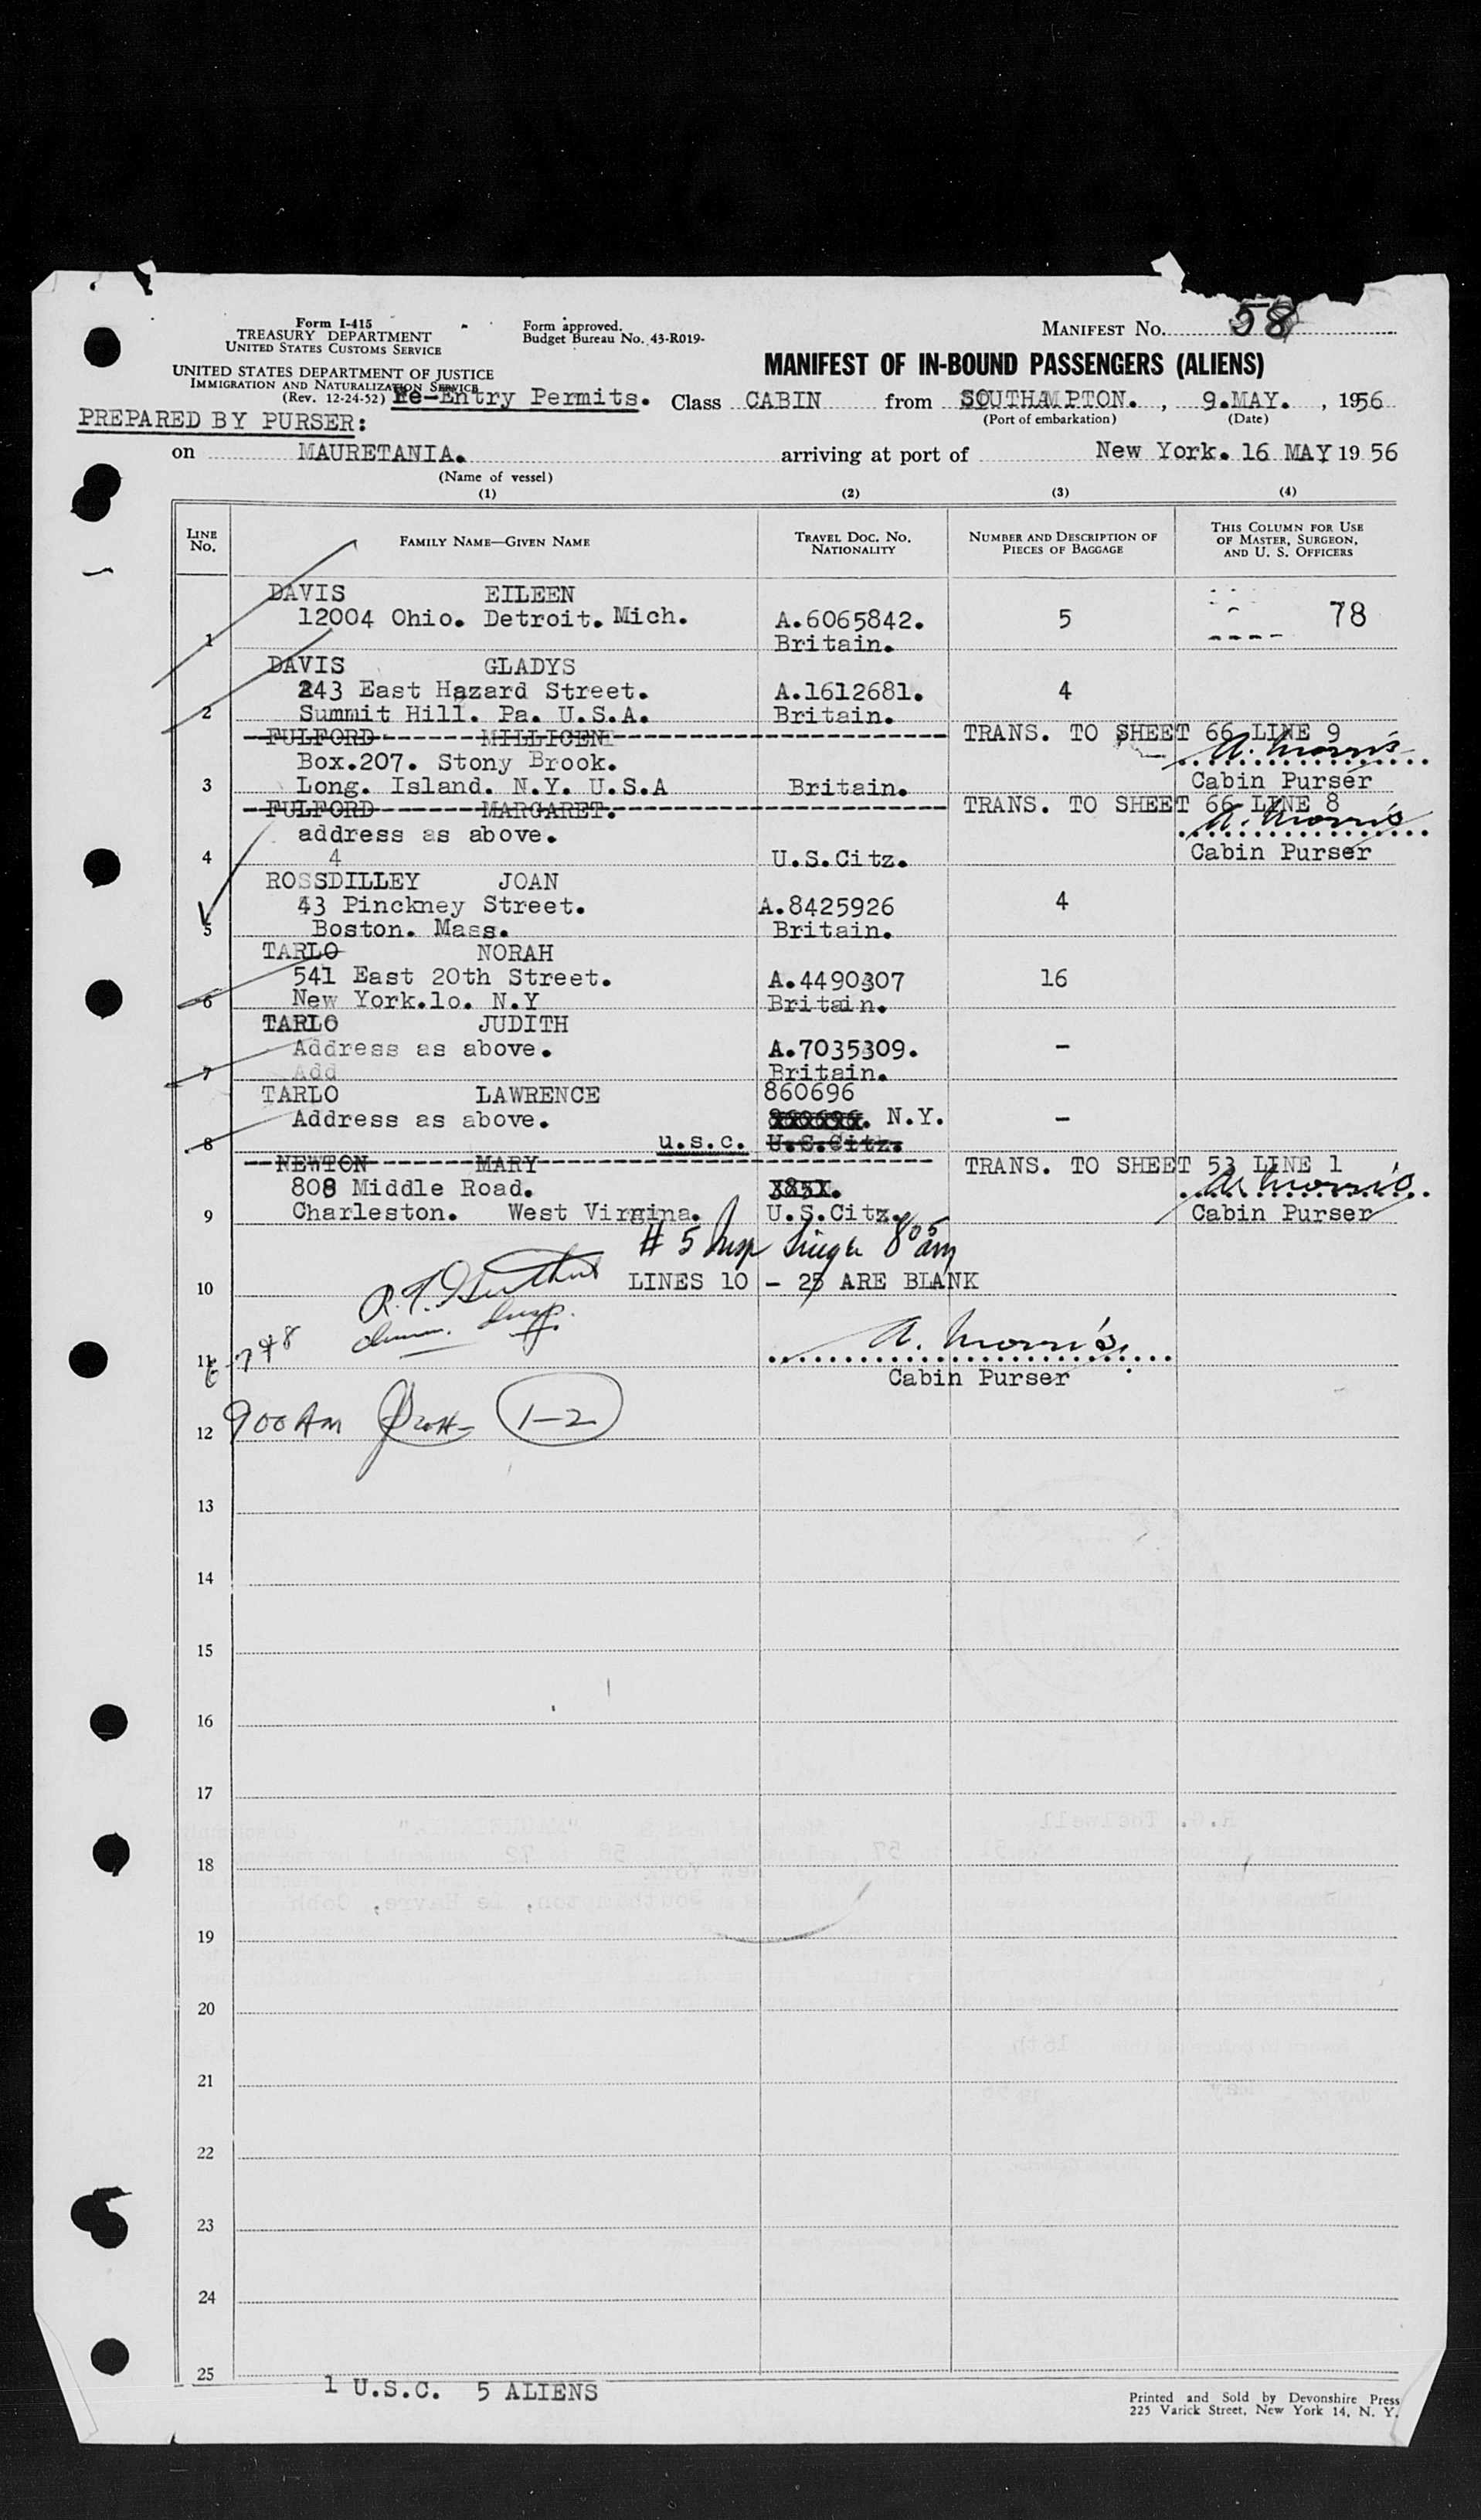 Form I-415
TREASURY DEPARTMENT
UNITED STATES CUSTOMS SERVICE
Form approved.
Budget Bureau No. 43-R019-
MANIFEST NO. 58
UNITED STATES DEPARTMENT OF JUSTICE
IMMIGRATION AND NATURALIZATION SERVICE
(Rev. 12-24-52)
MANIFEST OF IN-BOUND PASSENGERS (ALIENS)
Re-Entry Permits. Class CABIN from SOUTHAMPTON. , 9.MAY. , 1956
(Port of embarkation) (Date)
PREPARED BY PURSER:
on MAURETANIA. arriving at port of New York. 16 MAY 19 56
(Name of vessel)
(1) (2) (3) (4)
LINE NO. FAMILY NAME—GIVEN NAME TRAVEL DOC. NO. NATIONALITY NUMBER AND DESCRIPTION OF PIECES OF BAGGAGE THIS COLUMN FOR USE OF MASTER, SURGEON, AND U. S. OFFICERS
DAVIS EILEEN
12004 Ohio. Detroit. Mich. A.6065842. 5 78
1 Britain.
DAVIS GLADYS
243 East Hazard Street. A.1612681. 4
2 Summit Hill. Pa. U.S.A. Britain.
FULFORD MILLICENT TRANS. TO SHEET 66 LINE 9
Box.207. Stony Brook. A. Morris
3 Long. Island. N.Y. U.S.A Britain. Cabin Purser
FULFORD MARGARET. TRANS. TO SHEET 66 LINE 8
address as above. A. Morris
4 4 U.S.Citz. Cabin Purser
ROSSDILLEY JOAN
43 Pinckney Street. A.8425926 4
5 Boston. Mass. Britain.
TARLO NORAH
541 East 20th Street. A.4490307 16
6 New York.lo. N.Y Britain.
TARLO JUDITH
Address as above. A.7035309. -
7 Add Britain.
TARLO LAWRENCE 860696
Address as above. 860696. N.Y. -
8 u.s.c. U.S.Citz.
NEWTON MARY TRANS. TO SHEET 53 LINE 1
808 Middle Road. A. Morris
9 Charleston. West Virgina. U.S.Citz. Cabin Purser
# 5 Insp 8 05 am
10 LINES 10 - 25 ARE BLANK
Insp.
A. Morris
11 6-7 & 8
Cabin Purser
12 900 AM 1-2
13
14
15
16
17
18
19
20
21
22
23
24
25
1 U.S.C. 5 ALIENS
Printed and Sold by Devonshire Press
225 Varick Street, New York 14, N. Y.